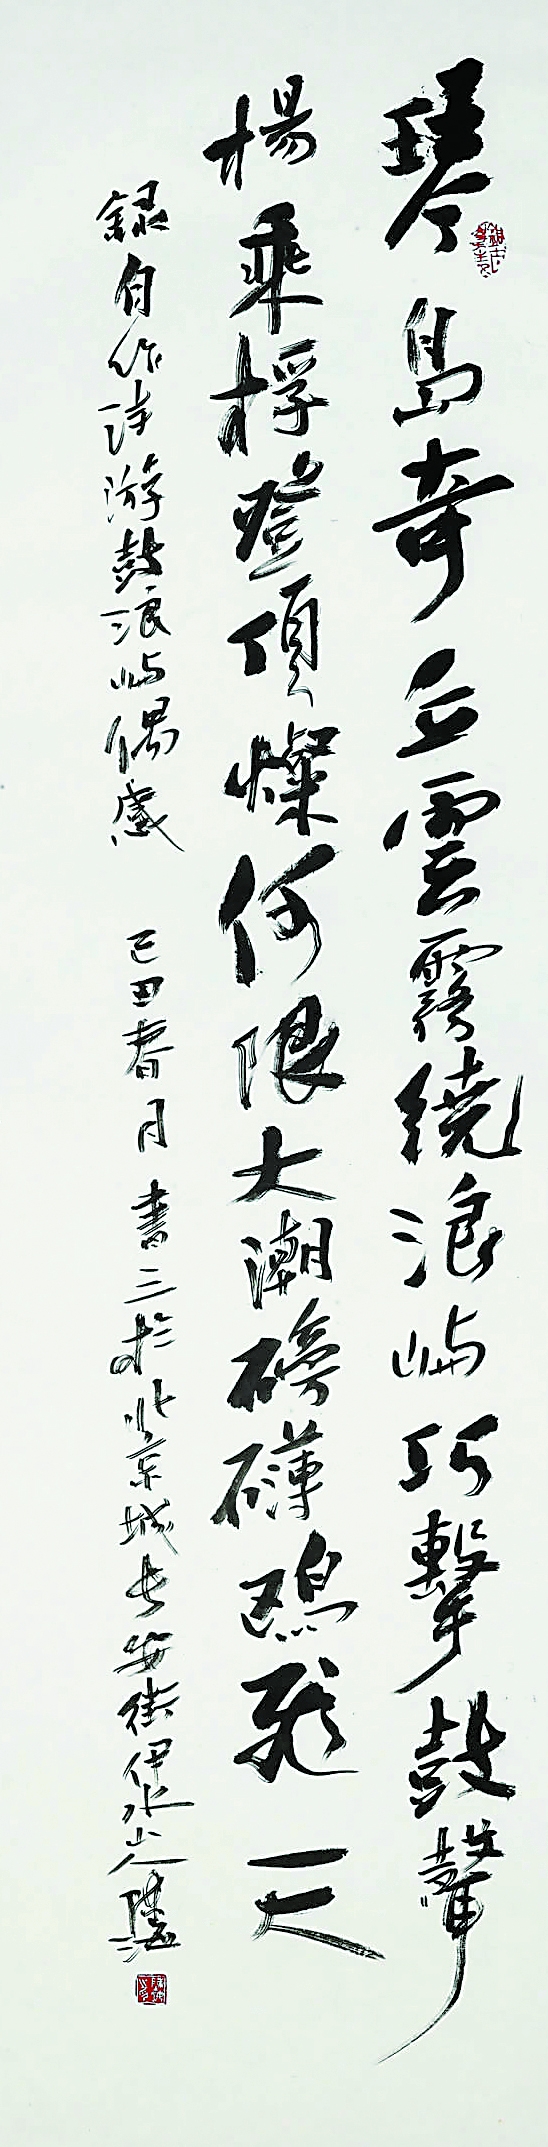 琴島奇立雲霧繞浪嶼巧擊鼓聲
楊乘桴登頂燦何限大潮磅礴鷗飛一天
錄自作詩游鼓浪嶼偶感 己丑春月書三於北京城長安街伊水山人